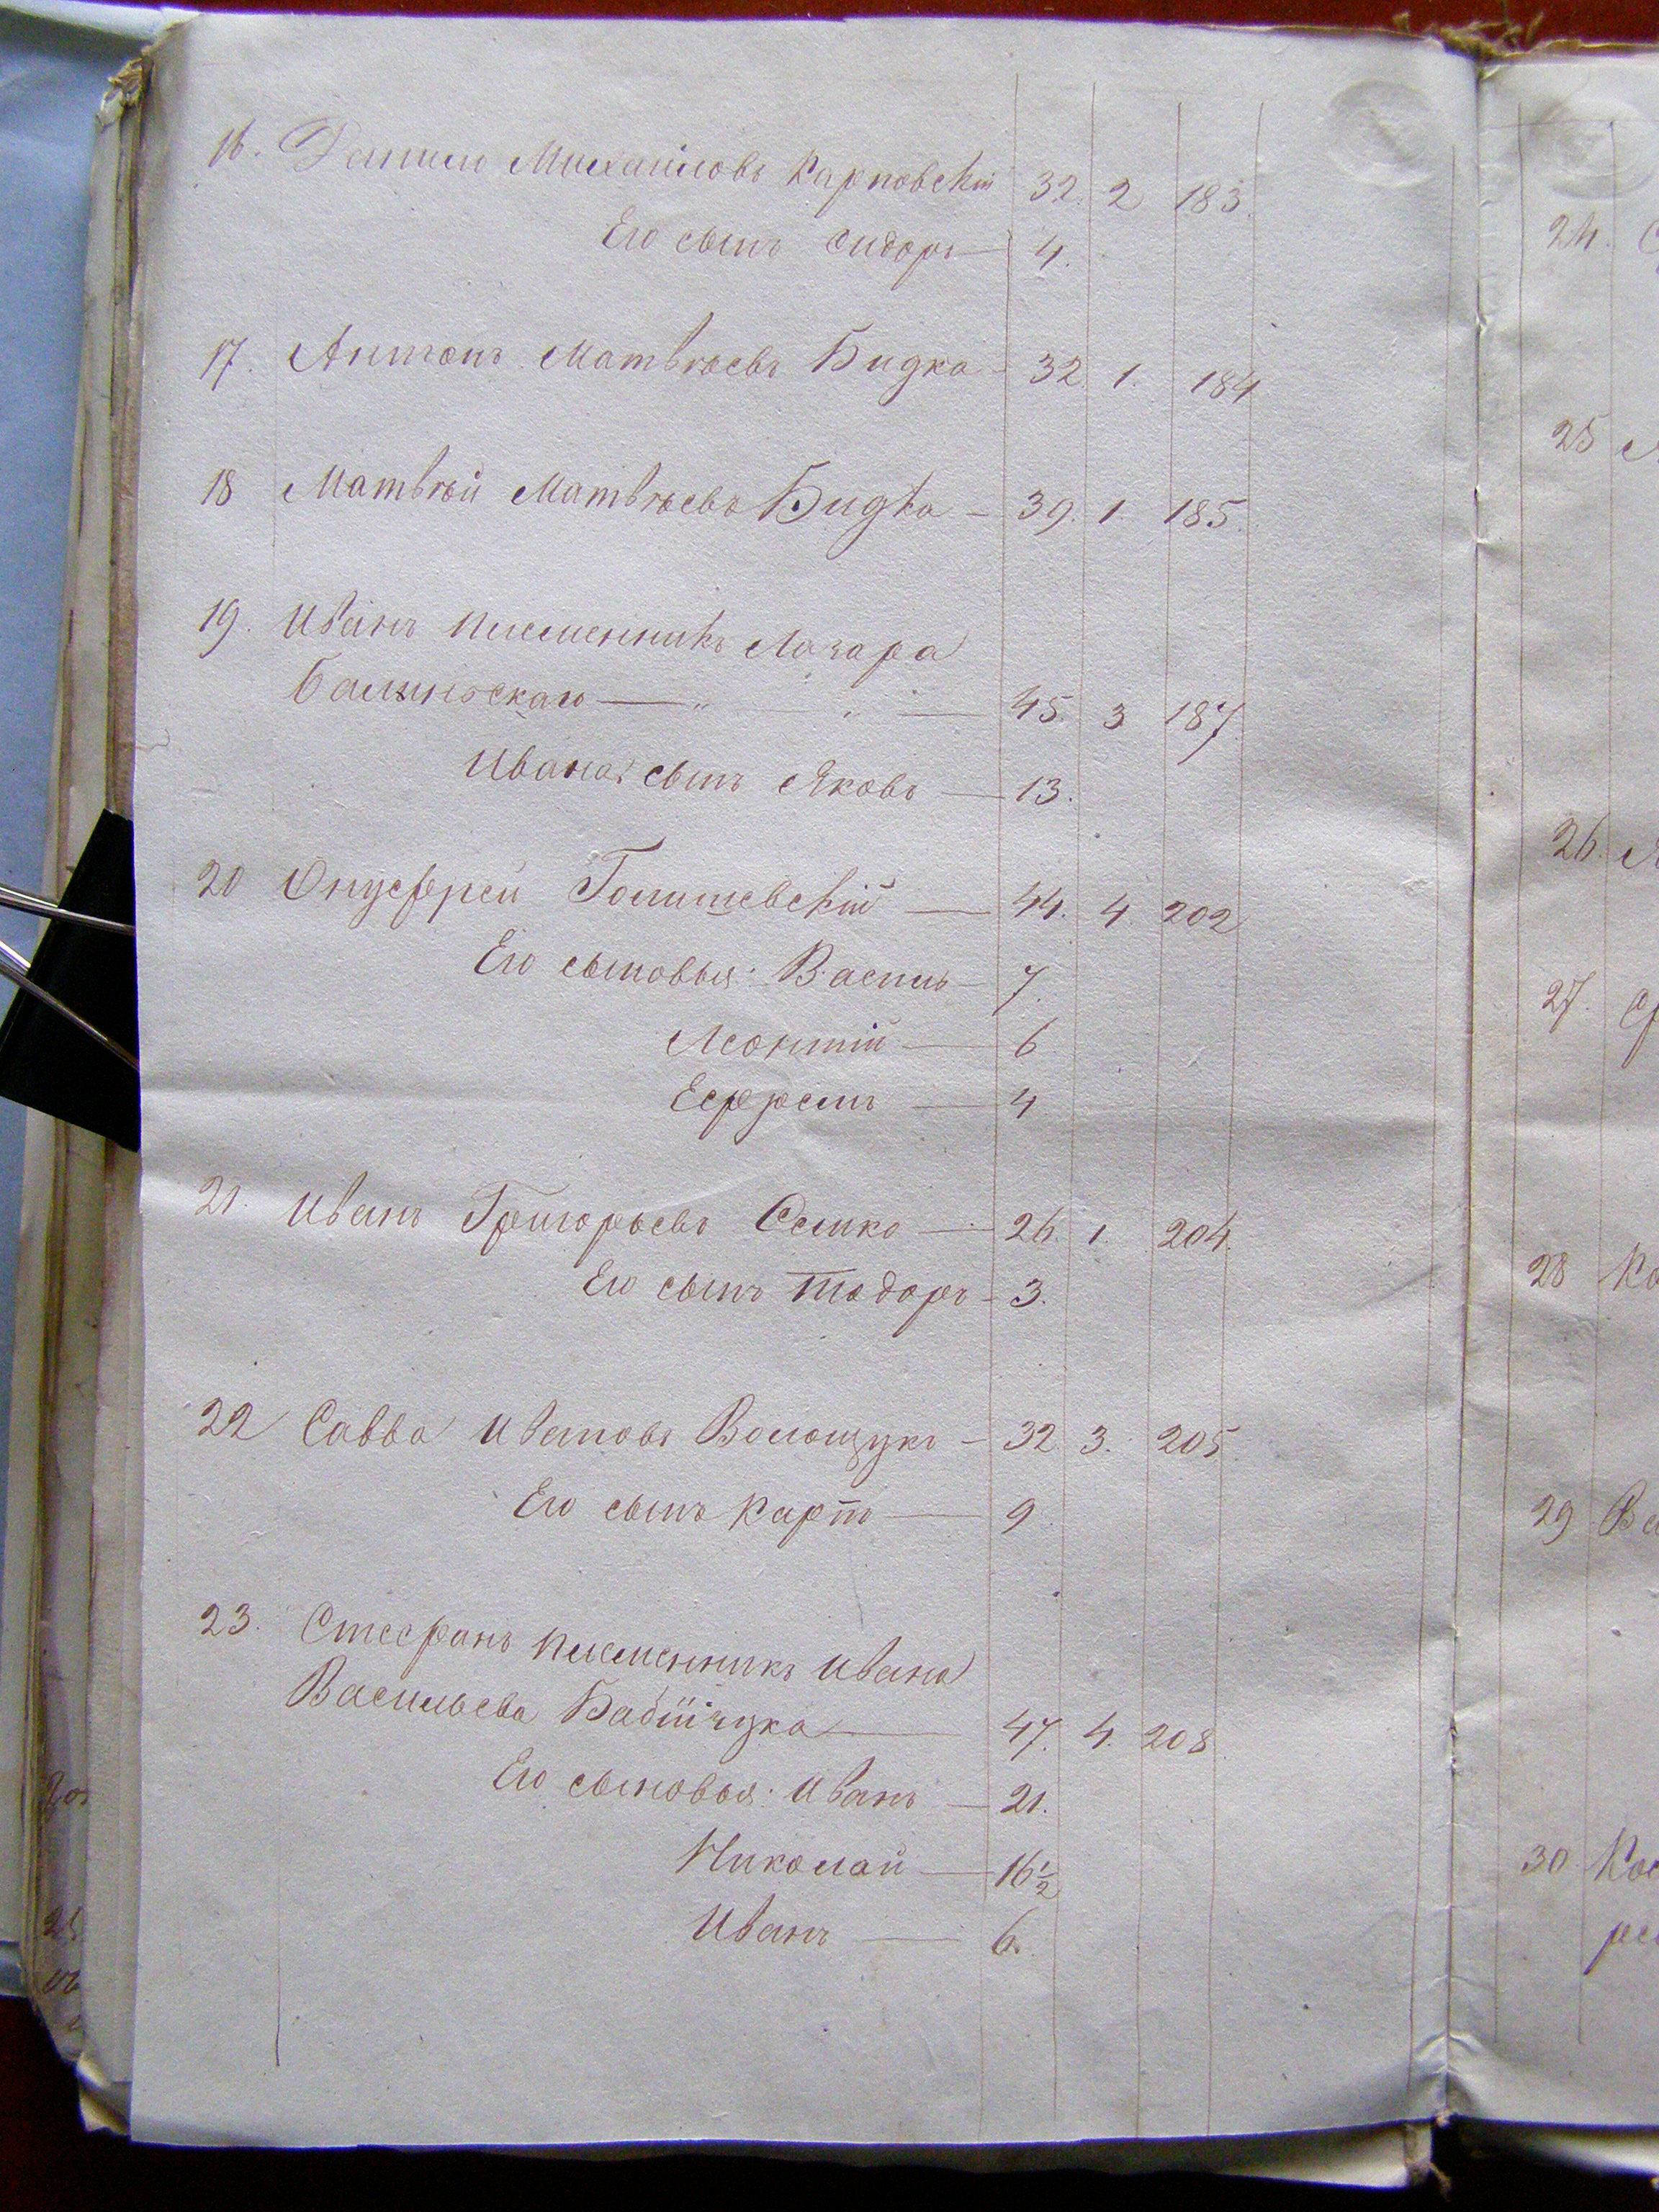 16. Данило Михайловъ Карповскій 32. 2 183.
Его сынъ Сидоръ — 4.
17. Антонъ Матвѣевъ Бидка - 32. 1. 184
18 Матвѣй Матвѣевъ Бидка - 39. 1. 185.
19. Иванъ племенникъ Лазара
— " — " — 45. 3 187.
Ивана сынъ Яковъ — 13.
20 Онуфрей Голишевскій — 44. 4. 202
Его сыновья: Василь — 7.
Леонтій — 6
Ефремъ — 4
21. Иванъ Григорьевъ Семко — 26. 1. 204.
Его сынъ Тодоръ - 3.
22 Савва Ивановъ Волощукъ - 32 3. 205.
Его сынъ Карпъ — 9.
23. Стефанъ племенникъ Ивана
Васильева Бабійчука — 47. 4. 208.
Его сыновья: Иванъ — 21.
Николай — 16½
Иванъ — 6.
24. С
25
26.
27.
28 Ко
29
30 Кос